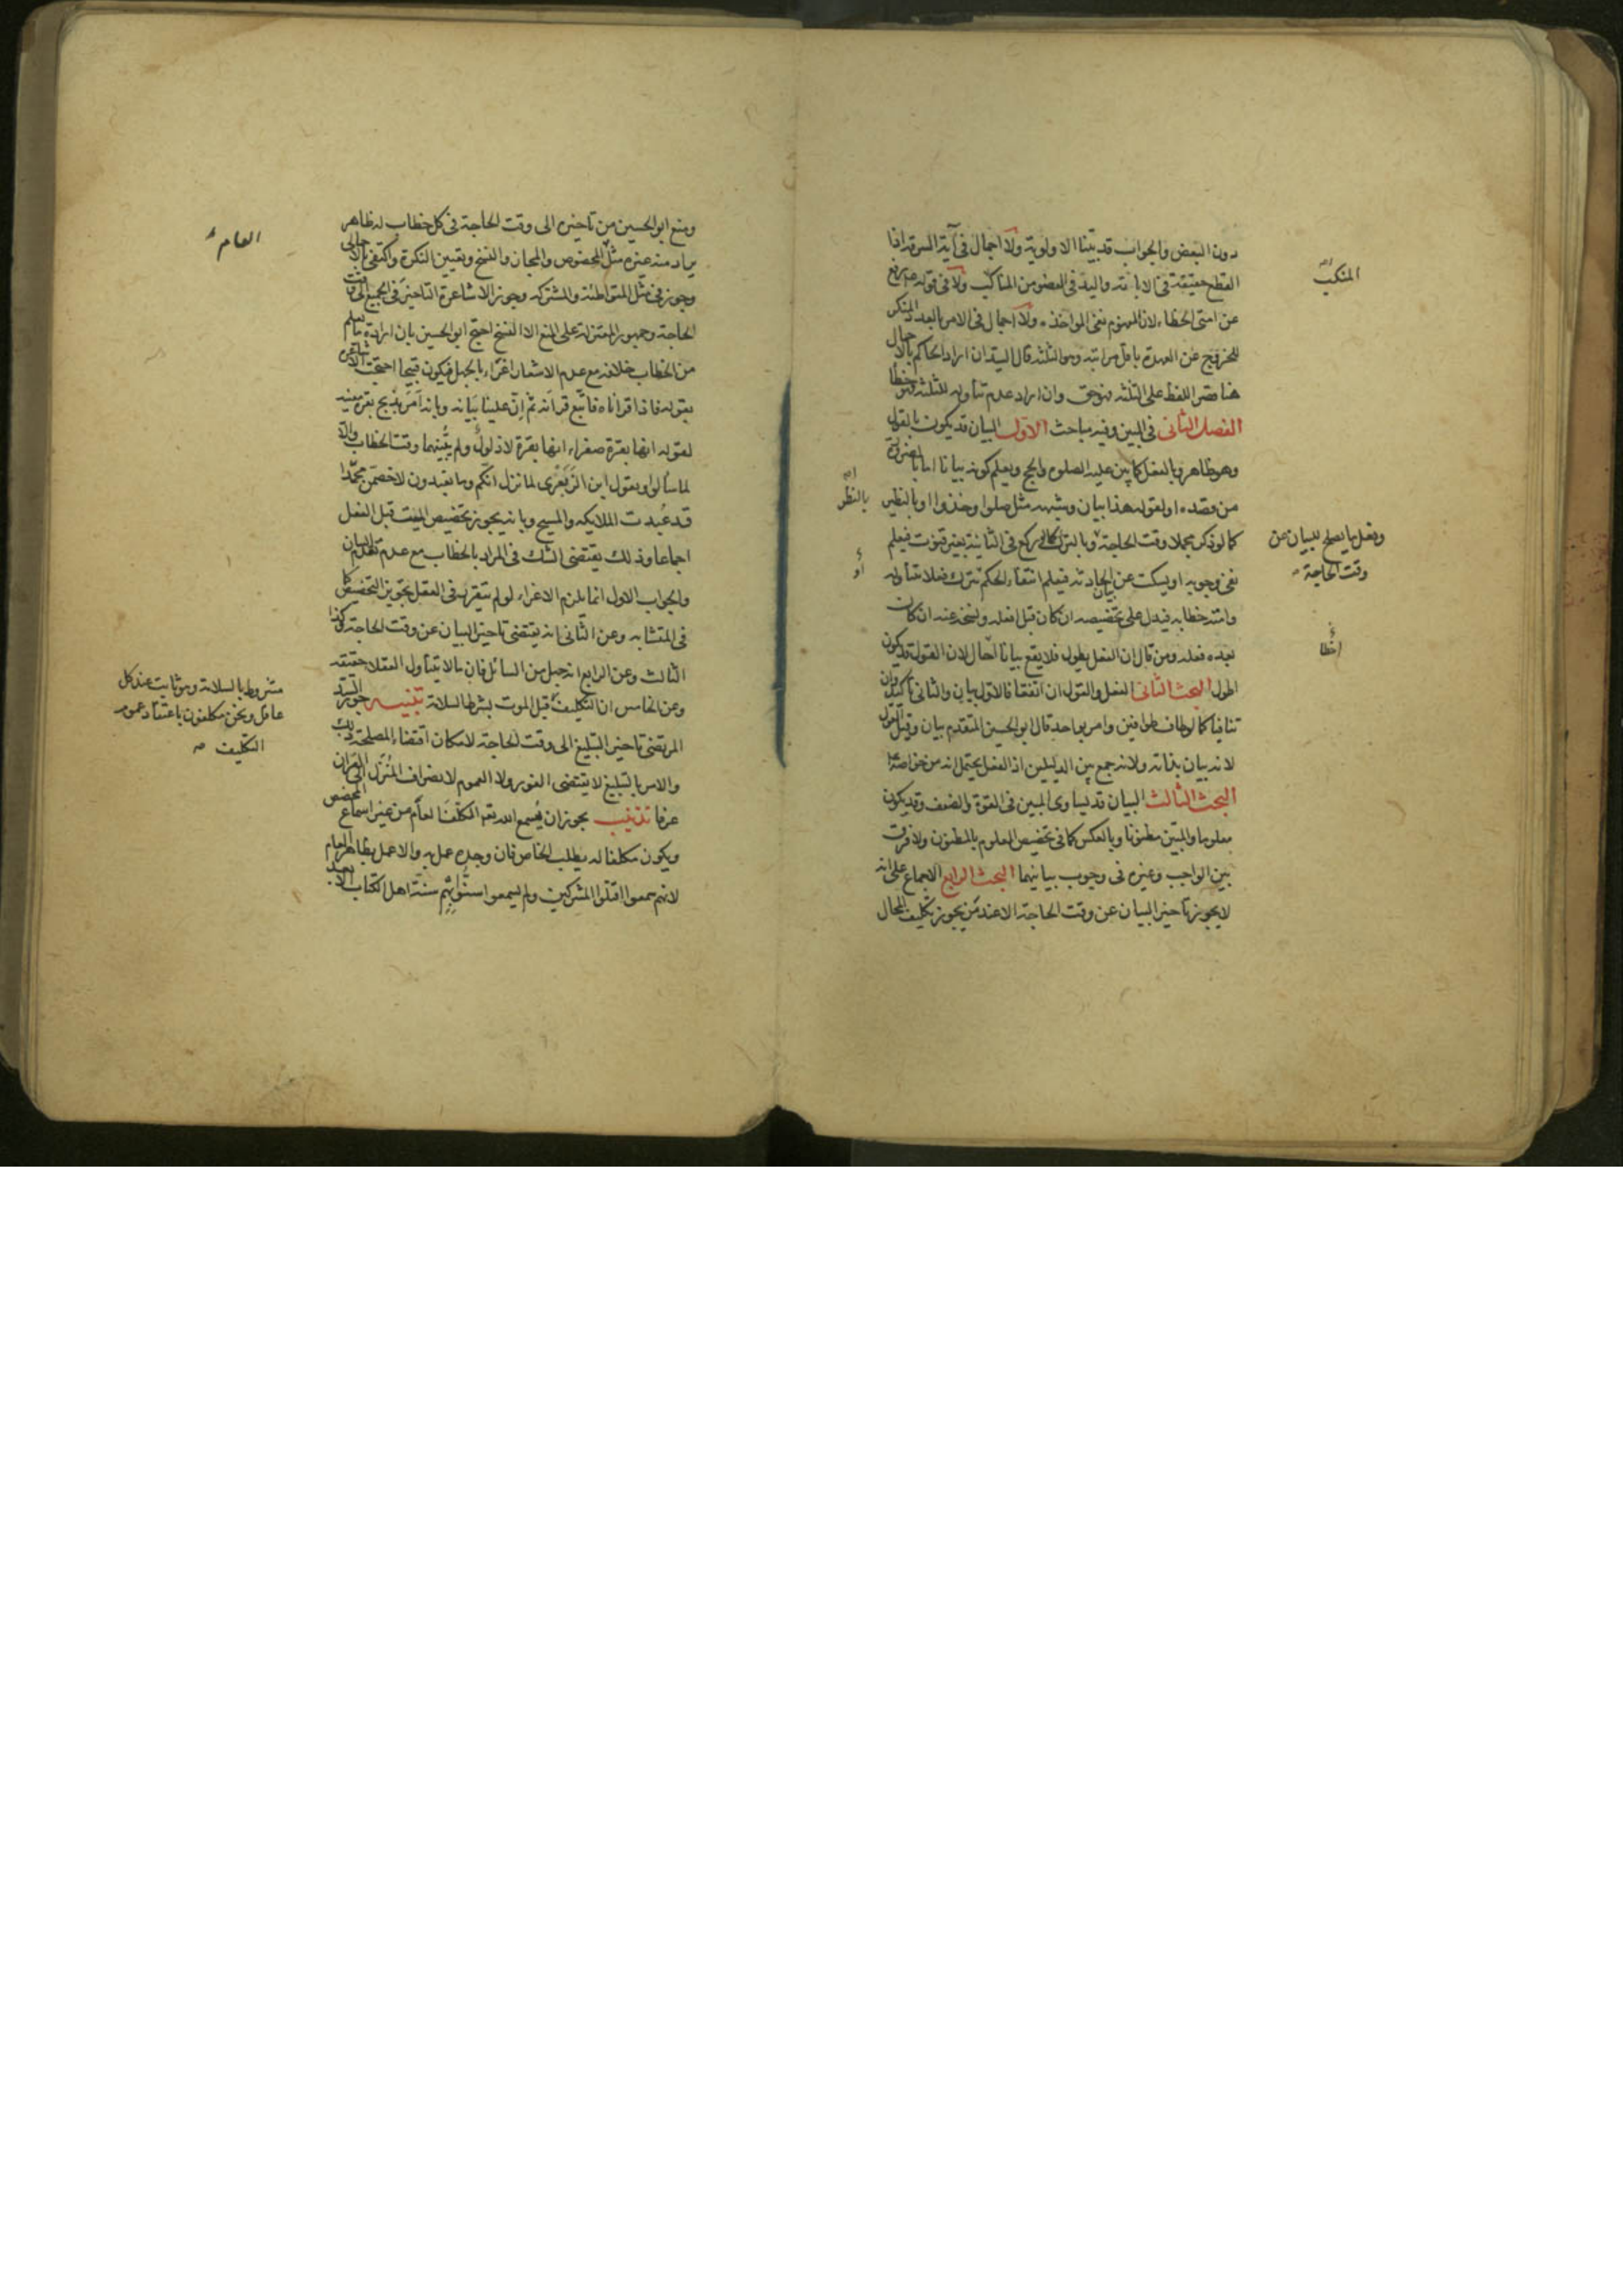 دون البعض والجواب قد بيّنا الاولوية ولا اجمال فى آية السرقة اذا
القطع حقيقة فى الابانة واليد فى العضو من المناكب ولا فى قوله رفع
عن امتى الخطاء لان المفهوم نفى المواخذة ولا اجمال فى الامر بالعدد المنكر
للخروج عن العهدة باقل مراتبه وهو الثلثة قال السيد ان اراد الحاكم بالاجمال
هنا قصر اللفظ على الثلثة فهو حق وان اراد عدم تناوله للثلثة فهو خطا
الفصل الثانى فى المبين وفيه مباحث الاول البيان قد يكون بالقول
وهو ظاهر وبالفعل كما بين عليه الصلوة والحج ويعلم كونه بيانا اما بالضرورة
من قصده او لقوله هذا بيان وشبهه مثل صلوا وخذوا او بالنظر
كما لو ذكر مجملا وقت الحاجة وبالترك كما لو ركع فى الثانية بغير قنوت فيعلم
نفى وجوبه او يسكت عن بيان الحادثة فيعلم انتفاء الحكم بترك فعلا تناوله
وامته خطابه فيدل على تخصيصه ان كان قبل فعله ونسخه عنه ان كان
بعده فعله ومن قال ان الفعل يطول فلا يقع بيانا احال لان القول قد يكون
اطول البحث الثانى الفعل والقول ان اتفقا فالاول بيان والثانى تاكيد وان
تنافيا كما لو طاف طوافين وامر بواحد قال ابو الحسين المتقدم بيان وقيل القول
لانه بيان بذاته ولانه جمع بين الدليلين اذ الفعل يحتمل انه من خواصه
البحث الثالث البيان قد يساوى المبين فى القوة والضعف وقد يكون
معلوما والمبيّن مظنونا وبالعكس كما فى تخصيص المعلوم بالمظنون ولا فرق
بين الواجب وغيره فى وجوب بيانهما البحث الرابع الاجماع على انه
لا يجوز تاخير البيان عن وقت الحاجة الا عند من يجوز تكليف المحال
المنكب
بالنظر
وفعل ما يصلح للبيان عن
وقت الحاجة
أو
اخطا
ومنع ابو الحسين من تاخيره الى وقت الحاجة فى كل خطاب له ظاهر
يراد منه غيره مثل المخصوص والمجاز والنسخ وتعيين النكرة واكتفى بالاجمالى
وجوز فى مثل المتواطئة والمشتركة وجوز الاشاعرة التاخير فى الجميع الى وقت
الحاجة وجمهور المعتزلة على المنع الا النسخ احتج ابو الحسين بان ارادة ما يعلم
من الخطاب خلافه مع عدم الاشعار اغراء بالجهل فيكون قبيحا احتجت الاشاعرة
بقوله فاذا قراناه فاتبع قرآنه ثم إنّ علينا بيانه وبانه أمَرَ بذبح بقرة معينة
لقوله انها بقرة صفراء انها بقرة لا ذلولٌ ولم يبينها وقت الخطاب والا
لما سألوا وبقول ابن الزبَعْرى لما نزل انكم وما تعبدون لاخصمن محمّدا
قد عُبدت الملايكه والمسيح وبانه يجوز تخصيص الميت قبل الفعل
اجماعا وذلك يقتضى الشك فى المراد بالخطاب مع عدم تقدم البيان
والجواب الاول انما يلزم الاغراء لو لم يتقرر فى العقل تجويز التخصيص كما
فى المتشابه وعن الثانى انه يقتضى تاخير البيان عن وقت الحاجة وكذا
الثالث وعن الرابع انه جهل من السائل فان ما لا يتناول العقلاء حقيقة
وعن الخامس ان التكليف قبل الموت بشرط السلامة تنبيه جوز السيد
المرتضى تاخير التبليغ الى وقت الحاجة لامكان اقتضاء المصلحة ذلك
والامر بالتبليغ لا يقتضى الفور ولا العموم لانصراف المُنزَل الى القران
عرفا تذنيب يجوز ان يُسمع الله تعالى المكلفَ العامَّ من غير اسماع المخصص
ويكون مكلفا له بطلب الخاص فان وجده عمل به والا عمل بظاهر العام
لانهم سمعوا اقتلوا المشركين ولم يسمعوا سنّوا بهم سنة اهل الكتاب الا بعد
العام
مشروط بالسلامة وهو ثابت عند كل
عاقل ونحن مكلفون باعتقاد عموم
التكليف